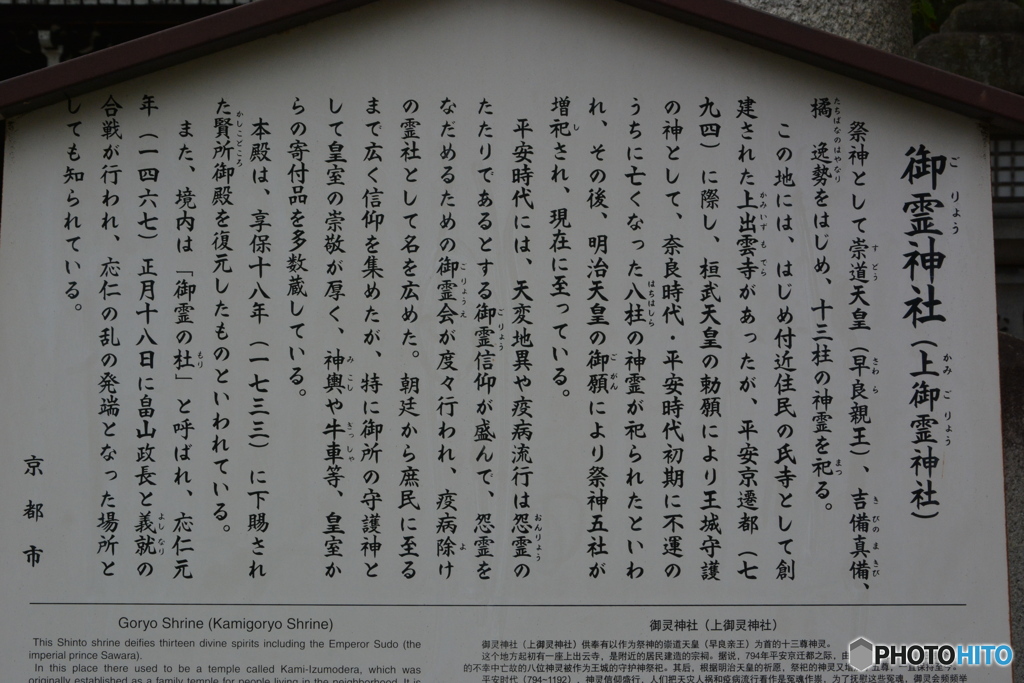 御霊神社（上御霊神社）
ご りょう
かみ ご りょう
祭神として崇道天皇（早良親王）、吉備真備、
す どう
さわ ら
き びの ま きび
橘　逸勢をはじめ、十三柱の神霊を祀る。
たちばなのはやなり
まつ
この地には、はじめ付近住民の氏寺として創
建された上出雲寺があったが、平安京遷都（七
かみ いず も でら
九四）に際し、桓武天皇の勅願により王城守護
の神として、奈良時代・平安時代初期に不運の
うちに亡くなった八柱の神霊が祀られたといわ
はちはしら
れ、その後、明治天皇の御願により祭神五社が
ご がん
増祀され、現在に至っている。
し
平安時代には、天変地異や疫病流行は怨霊の
おんりょう
たたりであるとする御霊信仰が盛んで、怨霊を
ごりょう
なだめるための御霊会が度々行われ、疫病除け
ごりょうえ
よ
の霊社として名を広めた。朝廷から庶民に至る
まで広く信仰を集めたが、特に御所の守護神と
して皇室の崇敬が厚く、神輿や牛車等、皇室か
み こし
ぎっ しゃ
らの寄付品を多数蔵している。
本殿は、享保十八年（一七三三）に下賜され
た賢所御殿を復元したものといわれている。
かしこどころ
また、境内は「御霊の杜」と呼ばれ、応仁元
もり
年（一四六七）正月十八日に畠山政長と義就の
よし なり
合戦が行われ、応仁の乱の発端となった場所と
しても知られている。
京都市
Goryo Shrine (Kamigoryo Shrine)
This Shinto shrine deifies thirteen divine spirits including the Emperor Sudo (the
imperial prince Sawara).
In this place there used to be a temple called Kami-Izumodera, which was
originally established as a family temple for people living in the neighborhood. It is
御灵神社（上御灵神社）
御灵神社（上御灵神社）供奉有以作为祭神的崇道天皇（早良亲王）为首的十三尊神灵。
这个地方起初有一座上出云寺，是附近的居民建造的宗祠。据说，794年平安京迁都之际，由
的不幸中亡故的八位神灵被作为王城的守护神祭祀。其后，根据明治天皇的祈愿，祭祀的神灵又增
平安时代（794~1192），神灵信仰盛行，人们把天灾人祸和疫病流行看作是冤魂作祟，为了抚慰这些冤魂，御灵会频频举
PHOTOHITO